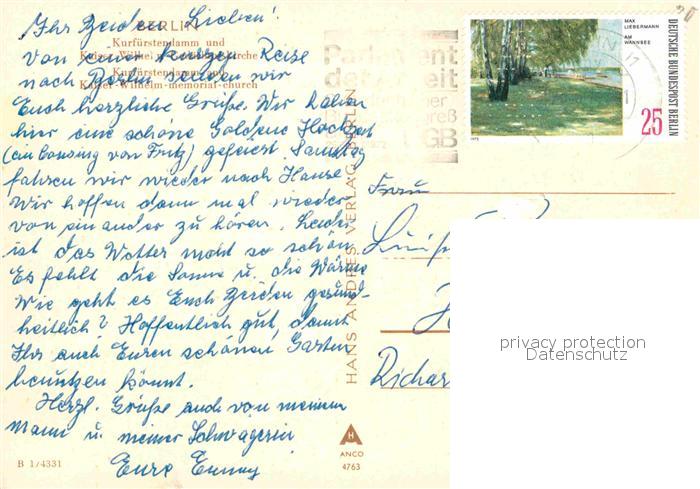 Ihr Beiden Lieben!
BERLIN
Kurfürstendamm und
Kaiser-Wilhelm-Gedächtniskirche
Kurfürstendamm and
Kaiser-Wilhelm-memorial-church
Von einer kurzen Reise
nach Berlin senden wir
Euch herzliche Grüße. Wir haben
hier eine schöne Goldene Hochzeit
(ein Cousing von Fritz) gefeiert. Samstag
fahren wir wieder nach Hause.
Wir hoffen dann mal wieder
von einander zu hören. Leider
ist das Wetter nicht so schön.
Es fehlt die Sonne u. die Wärme
Wie geht es Euch Beiden gesund-
heitlich? Hoffentlich gut, damit
Ihr auch Euren schönen Garten
benutzen könnt.
Herzl. Grüße auch von meinem
Mann u. meiner Schwägerin
Eure
B 1/4331
HANS ANDRES VERLAG BERLIN
H
A
ANCO
4763
der
GB
MAX
LIEBERMANN
AM
WANNSEE
1972
25
DEUTSCHE BUNDESPOST BERLIN
Frau
Richar
privacy protection
Datenschutz